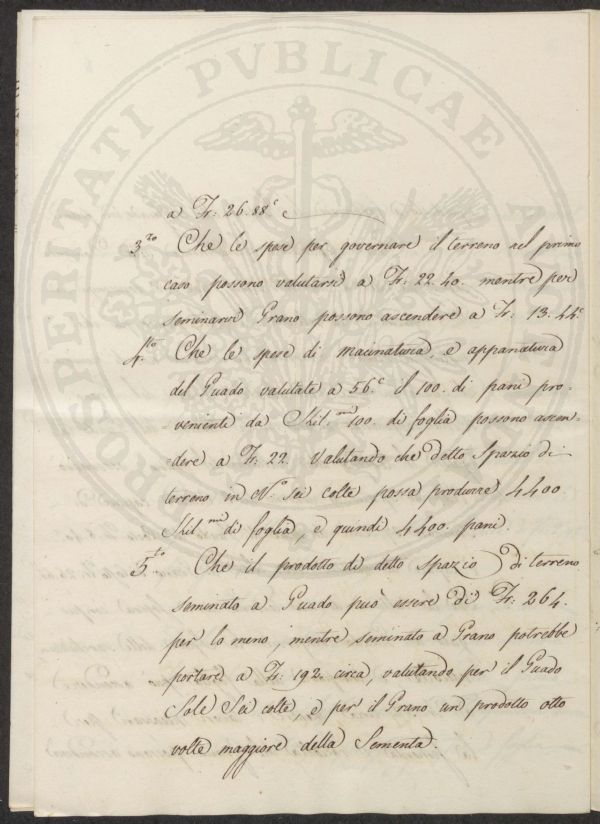 PROSPERITATI PVBLICAE A
a Fr: 26.88c
3zo Che le spese per governare il terreno nel primo
caso possono valutarsi a Fr: 22.40. mentre per
seminarsi Grano possono ascendere a Fr: 13.44c
4to Che le spese di macinatura, e appanatura
del Guado valutate a 56c il 100. di pani pro=
=veniente da Kil.mi 100. di foglia possono ascen=
=dere a Fr: 22. Valutando che detto Spazio di
terreno in No. sei colte possa produrre 4400
Kil.mi di foglia, e quindi 4400. pani.
5to Che il prodotto di detto spazio di terreno
seminato a Guado può essere di Fr: 264.
per lo meno, mentre seminato a Grano potrebbe
portare a Fr: 192. circa, valutando per il Guado
Sole Sei colte, e per il Grano un prodotto otto
volte maggiore della Sementa.